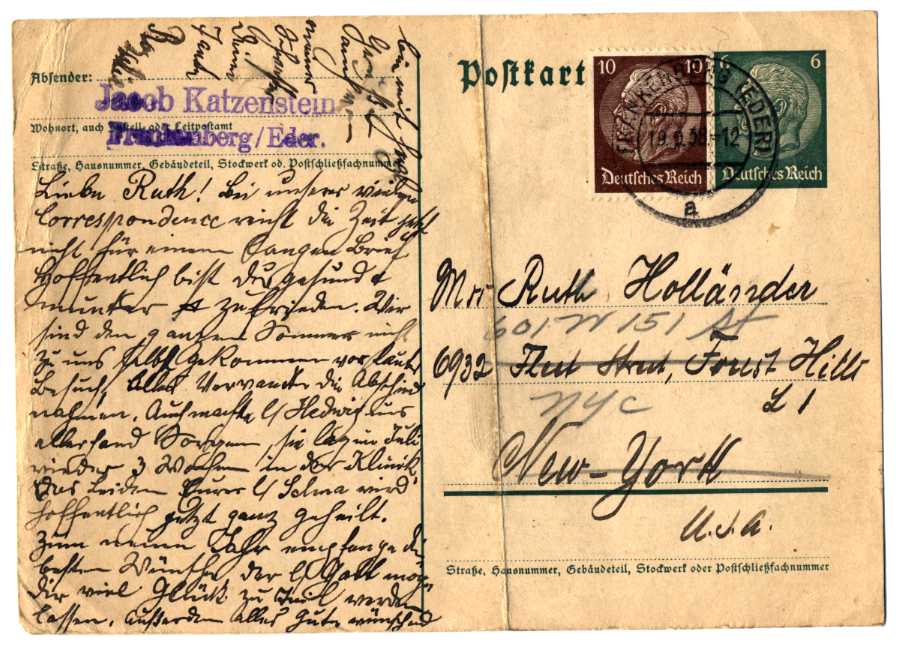 Absender:
Jacob Katzenstein
Wohnort, auch Zustell- oder Leitpostamt
Frankenberg/Eder.
Straße, Hausnummer, Gebäudeteil, Stockwerk od. Postschließfachnummer
Liebe Ruth! Bei unserer vielen
Correspondence reicht die Zeit jetzt
nicht für einen langen Brief
Hoffentlich bist du gesund &
munter & zufrieden. Wir
sind den ganzen Sommer nicht
zu uns selbst gekommen vor lauter
Besuch, alles Verwandte die Abschied
nahmen. Auch machte l/ Hedwig uns
allerhand Sorgen, sie lag im Juli
wieder 3 Wochen in der Klinik
Das Leiden Eurer l/ Selma wird
hoffentlich jetzt ganz geheilt.
Zum neuen Jahr empfange die
besten Wünsche der l/ Gott möge
dir viel Glück zu Teil werden
lassen. Außerdem alles Gute wünschend
Postkarte
10 10
Deutsches Reich
6
Deutsches Reich
FRANKENBERG (EDER)
19.9.38.-12
a
Ruth Holländer
601 W 151 St
6932 Fleet Street, Forest Hills
L I
NYC
New-York
U.S.A.
Straße, Hausnummer, Gebäudeteil, Stockwerk oder Postschließfachnummer